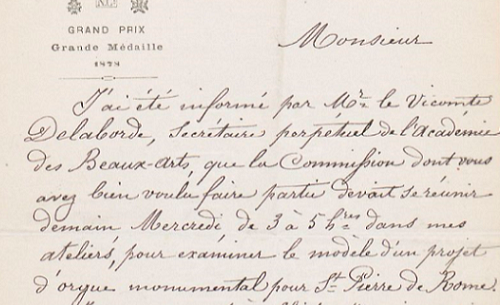 GRAND PRIX
Grande Médaille
1878
Monsieur
J'ai été informé par Mr. le Vicomte
Delaborde, Secrétaire perpétuel de l'Académie
des Beaux-arts, que la Commission dont vous
avez bien voulu faire partie devait se réunir
demain Mercredi de 3 à 5 hres dans mes
ateliers, pour examiner le modèle d'un projet
d'orgue monumental pour St. Pierre de Rome.